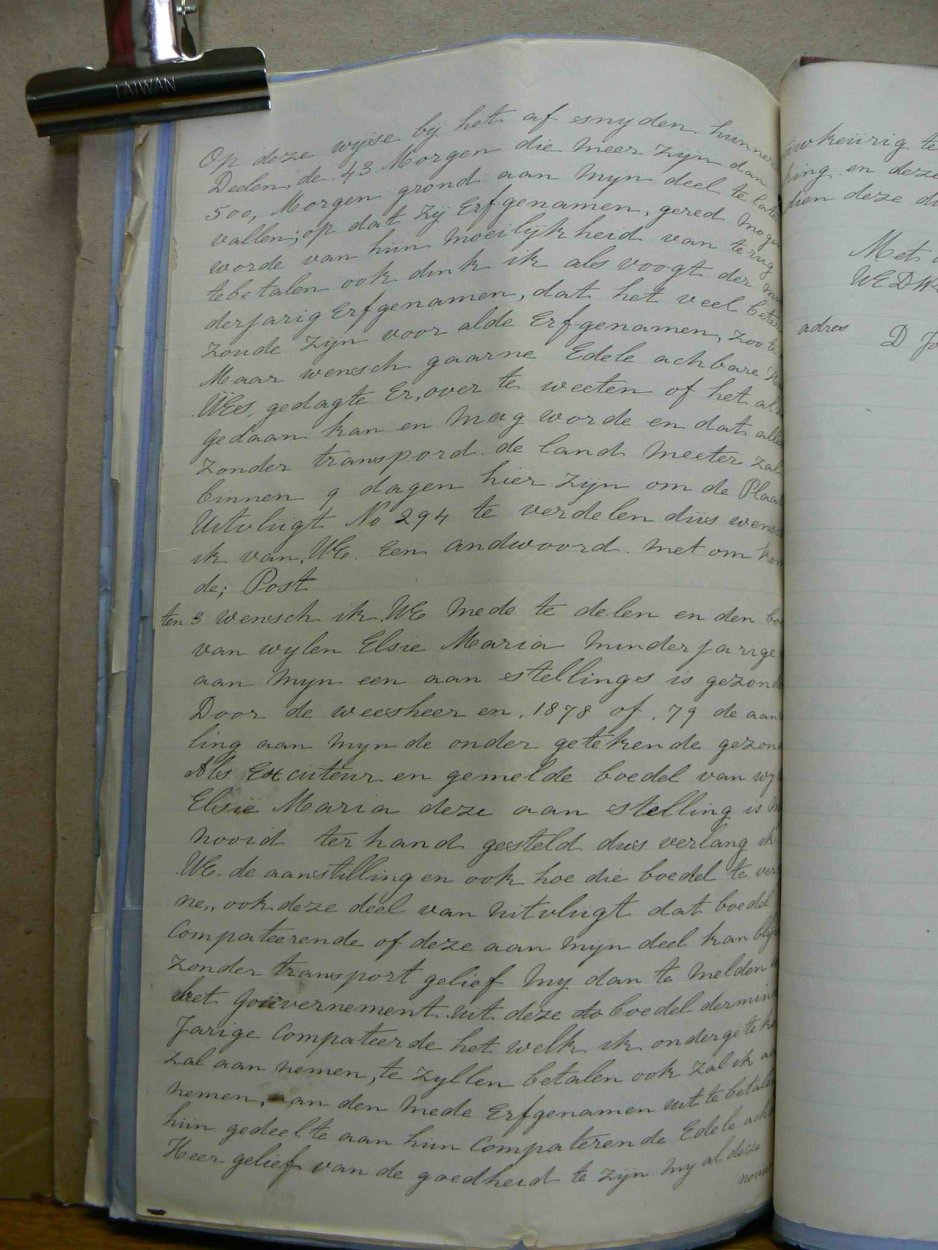 TAIWAN
Op deze wyse bij het af snyden hunner
Delen, de 43 Morgen die meer zijn dan
500, Morgen grond aan Myn deel te laten
vallen; op dat zij Erfgenamen, gered moge
worde van hun moeilijkheid van terug
tebetalen ook dink ik als voogt der min
derjarig Erfgenamen, dat het veel beter
zoude zijn voor alde Erfgenamen, zoo te
Maar wensch gaarne Edele achbare
WEs, gedagte Er,over te weeten of het al
gedaan kan en Mag worde en dat alle
zonder transpord. de land Meeter zal
binnen 9 dagen hier zijn om de Plaa
Uitvlugt No 294 te verdelen dus wensch
ik van, WE. Een andwoord. Met om
de; Post
ten 3 wensch ik, WE Mede te delen en den bo
van wylen Elsie Maria Minderjarige
aan Myn een aan stellings is gezon
Door de weesheer en, 1878 of, 79 de aan
ling aan Myn de onder getekende gezon
Als Excuteur en gemelde boedel van wy
Elsie Maria deze aan stelling is
Nooid ter hand gesteld dus verlang ik
WE. de aanstilling en ook hoe die boedel te ver
ne,, ook deze deel van Uitvlugt dat boedel
Compateerende of deze aan Myn deel kan blijv
zonder transport gelief My dan te Melden
het Gouvernement uit deze do boedel dermind
Jarige Compateerde het welk ik onderge teken
zal aan nemen, te zyllen betalen ook zal ik aa
nemen, aan den Mede Erfgenamen uit te betalen
hun gedeelte aan hun Compaterende Edele acht
Heer gelief van de goedheid te zijn My al deze
nauw
uwkeurig te
king en deze
dien deze
Met
WEDW
adres
D Jo